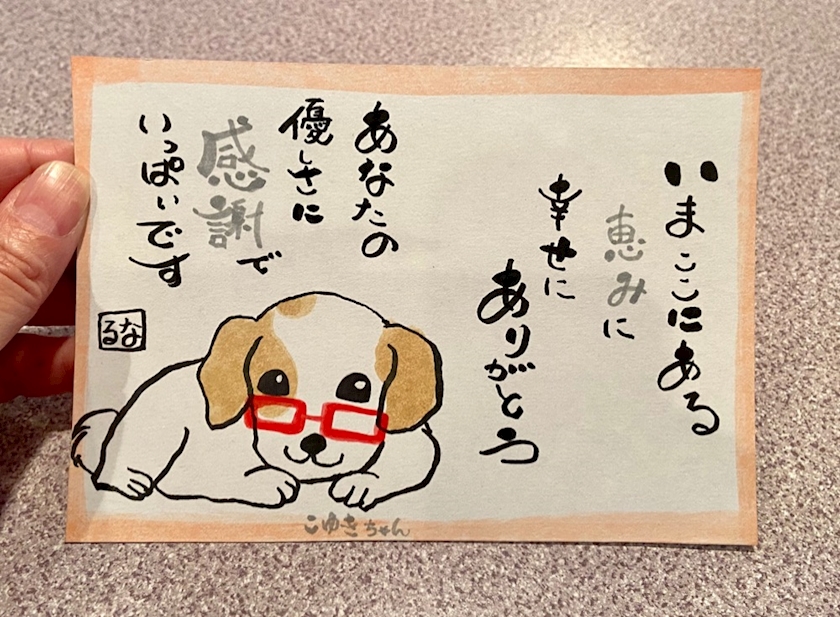 いまここにある
恵みに
幸せに
ありがとう
あなたの
優しさに
感謝で
いっぱいです
なる
こゆきちゃん